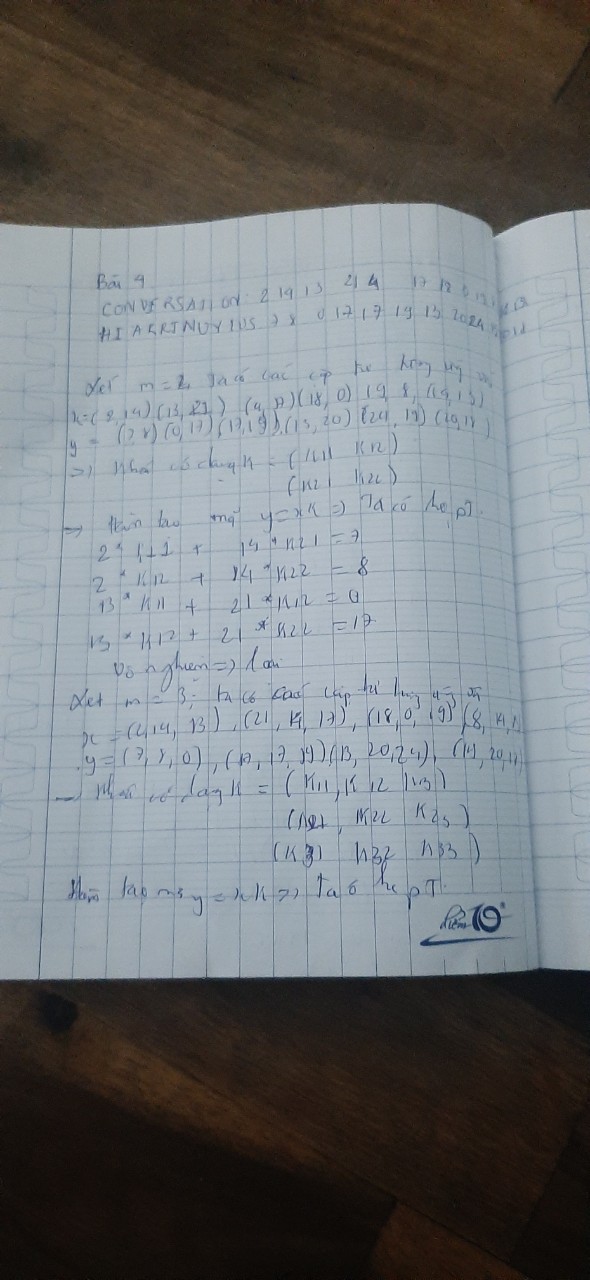 Bài 9
CONVERSATION: 2 14 13 21 4 17 18 0 19
HIARRTNUYTUS 7 8 0 17 17 19 13 20 24 19 20 18
Xét m = 2, ta có các cặp
x = (2,14) (13,21) (4,17) (18,0) 19, 8, (14,13)
y = (7,8) (0,17) (17,19), (13,20) (24,19) (20,18)
=> Khóa có dạng K = (K11 K12)
(K21 K22)
=> Hàm tạo mã y = xK => Ta có hệ pT.
2 * K11 + 14 * K21 = 7
2 * K12 + 14 * K22 = 8
13 * K11 + 21 * K12 = 0
13 * K12 + 21 * K22 = 17
Vô nghiệm => loại
Xét m = 3; ta có các cặp từ
x = (2,14, 13), (21, 4, 17), (18, 0, 19), (8, 14,
y = (7, 8, 0), (17, 17, 19) (13, 20, 24), (19, 20, 18)
Khóa có dạng K = (K11, K12 K13)
(K21, K22 K23)
(K31 K32 K33)
Hàm tạo mã y = xK => Ta có hệ pT.
Điểm 10